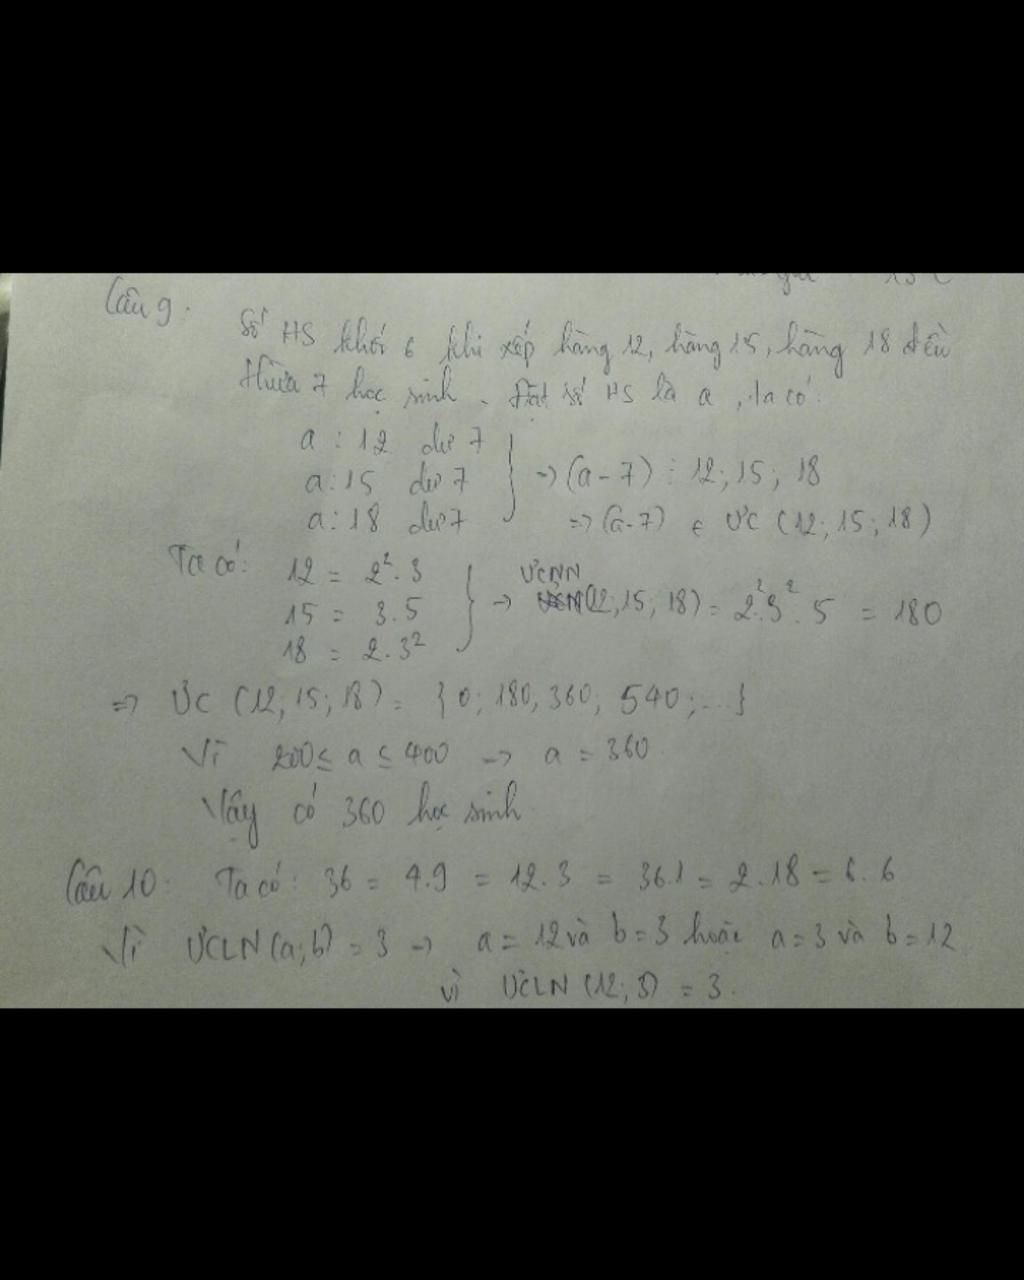 Câu 9:
Số HS khối 6 khi xếp hàng 12, hàng 15, hàng 18 đều
thừa 7 học sinh. Đặt số HS là a, ta có:
a : 12 dư 7
a : 15 dư 7 } → (a - 7) ⋮ 12; 15; 18
a : 18 dư 7 => (a-7) ∈ ƯC (12; 15; 18)
Ta có: 12 = 2². 3
15 = 3.5 } → ƯCNN (12; 15; 18) = 2².3².5 = 180
18 = 2.3²
=> ƯC (12; 15; 18) = {0; 180, 360; 540; ...}
Vì 200 ≤ a ≤ 400 → a = 360
Vậy có 360 học sinh.
Câu 10: Ta có: 36 = 4.9 = 12.3 = 36.1 = 2.18 = 6.6
Vì ƯCLN (a; b) = 3 → a = 12 và b = 3 hoặc a = 3 và b = 12
vì ƯCLN (12; 3) = 3.